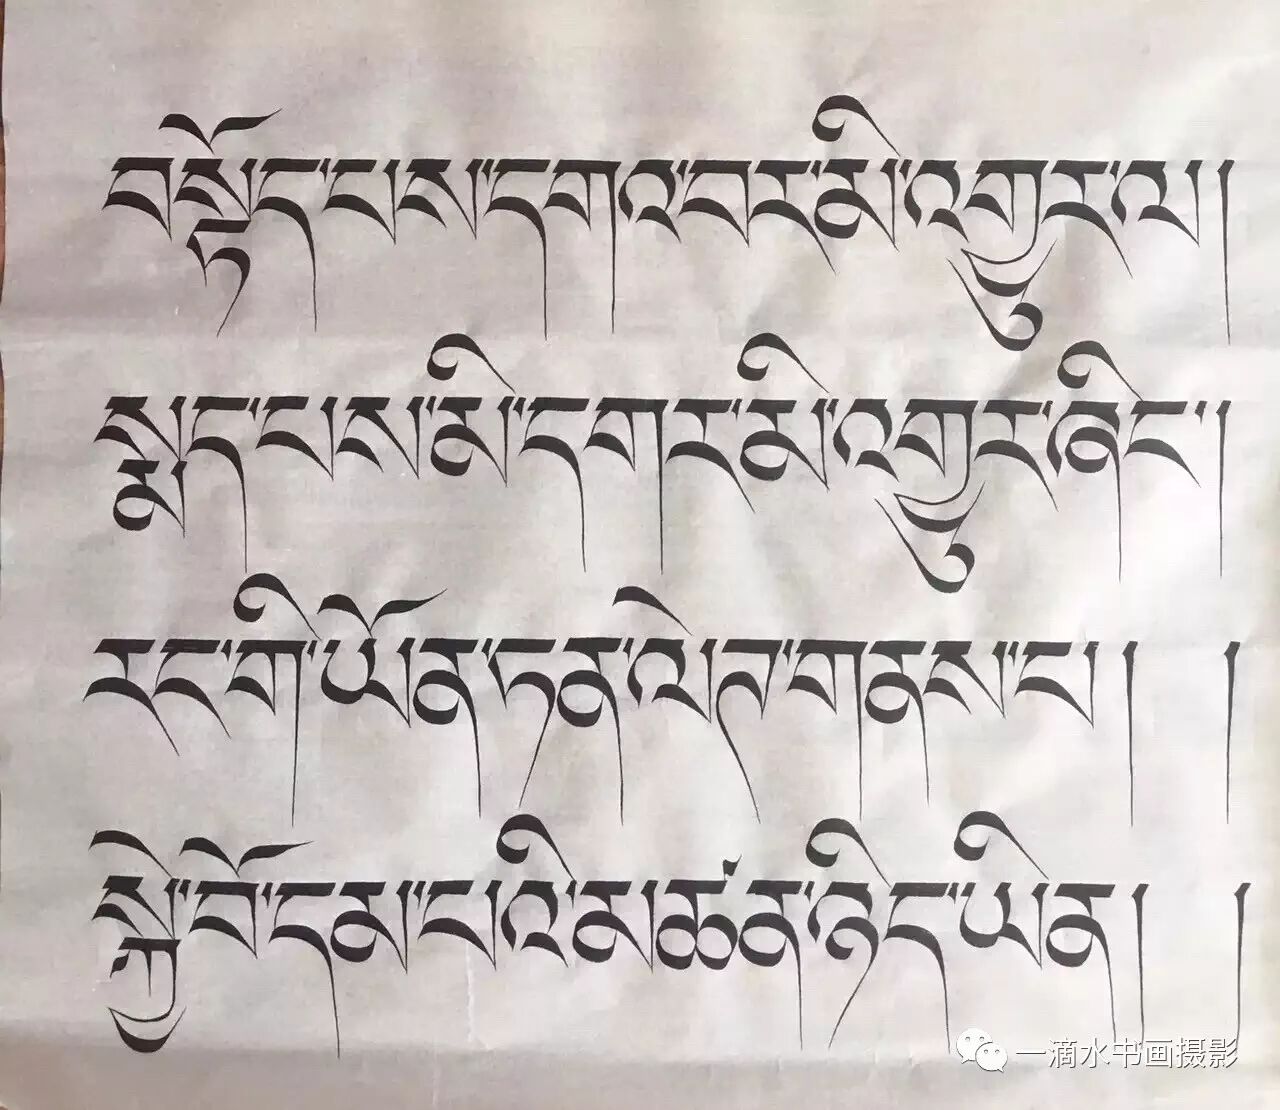 བསྟོད་པས་དགའ་བར་མི་འགྱུར་ལ། །
སྨད་པས་མི་དགར་མི་འགྱུར་ཞིང་། །
རང་གི་ཡོན་ཏན་ལེཊ་གནས་པ། །
སྐྱེ་བོ་དམ་པའི་མཚན་ཉིད་ཡིན། །
一滴水书画摄影